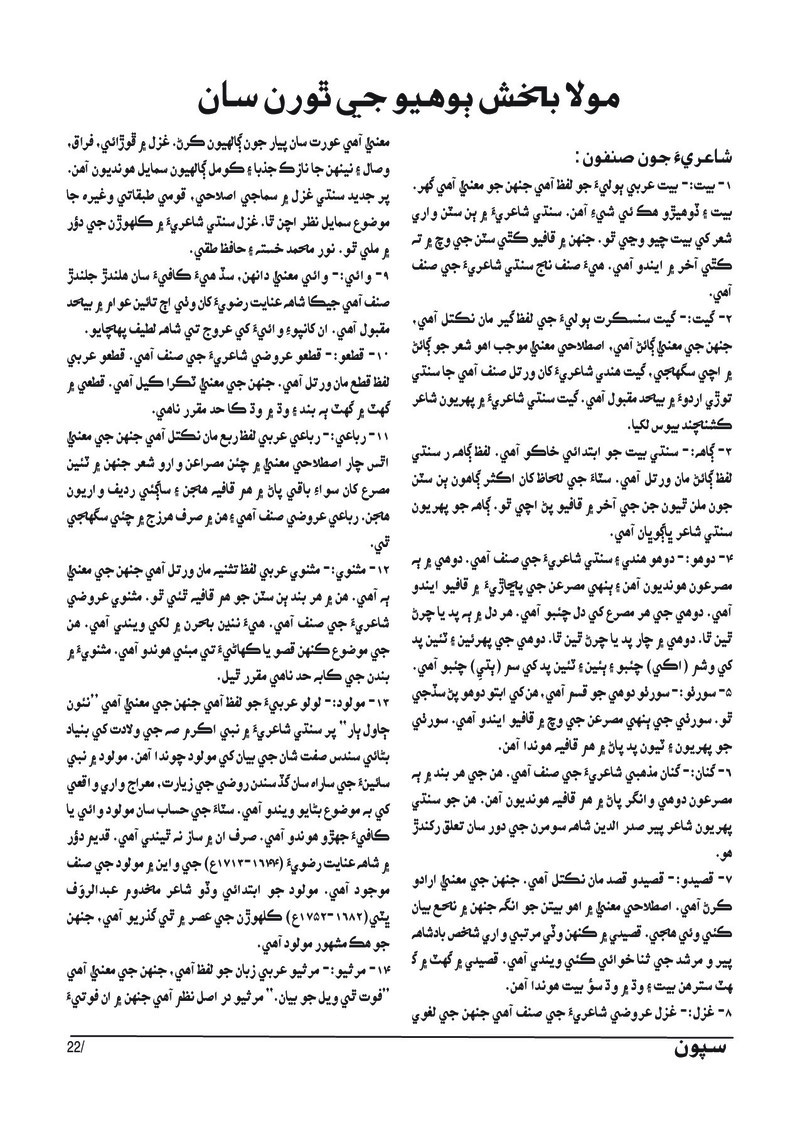 مولا بخش ٻوهيو جي ٿورن سان
شاعريءَ جون صنفون :
۱- بيت:- بيت عربي ٻوليءَ جو لفظ آهي جنهن جو معنيٰ آهي گهر.
بيت ۽ ڏوهيڙو هڪ ئي شيءِ آهن. سنڌي شاعريءَ ۾ ٻن سٽن واري
شعر کي بيت چيو وڃي ٿو. جنهن ۾ قافيو ڪٿي سٽن جي وچ ۾ ته
ڪٿي آخر ۾ ايندو آهي. هيءَ صنف نج سنڌي شاعريءَ جي صنف
آهي.
۲- گيت:- گيت سنسڪرت ٻوليءَ جي لفظ گير مان نڪتل آهي،
جنهن جي معنيٰ ڳائڻ آهي، اصطلاحي معنيٰ موجب اهو شعر جو ڳائڻ
۾ اچي سگهجي، گيت هندي شاعريءَ کان ورتل صنف آهي جا سنڌي
توڙي اردوءَ ۾ بيحد مقبول آهي. گيت سنڌي شاعريءَ ۾ پهريون شاعر
ڪشنچند بيوس لکيا.
۳- ڳاهه:- سنڌي بيت جو ابتدائي خاڪو آهي. لفظ ڳاهه ر سنڌي
لفظ ڳائڻ مان ورتل آهي. سٽاءَ جي لحاظ کان اڪثر ڳاهون ٻن سٽن
جون ملن ٿيون جن جي آخر ۾ قافيو پڻ اچي ٿو. ڳاهه جو پهريون
سنڌي شاعر ڀاڳوڀان آهي.
۴- دوهو:- دوهو هندي ۽ سنڌي شاعريءَ جي صنف آهي. دوهي ۾ ٻه
مصرعون هونديون آهن ۽ ٻنهي مصرعن جي پڇاڙيءَ ۾ قافيو ايندو
آهي. دوهي جي هر مصرع کي دل چئبو آهي. هر دل ۾ ٻه پد يا چرڻ
ٿين ٿا. دوهي ۾ چار پد يا چرڻ ٿين ٿا. دوهي جي پهرئين ۽ ٽئين پد
کي وشم (اڪي) چئبو ۽ ٻئين ۽ ٽئين پد کي سم (ٻتي) چئبو آهي.
۵- سورٺو:- سورٺو دوهي جو قسم آهي، هن کي ابتو دوهو پڻ سڏجي
ٿو. سورٺي جي ٻنهي مصرعن جي وچ ۾ قافيو ايندو آهي. سورٺي
جو پهريون ۽ ٽيون پد پاڻ ۾ هم قافيه هوندا آهن.
۶- گنان:- گنان مذهبي شاعريءَ جي صنف آهي. هن جي هر بند ۾ ٻه
مصرعون دوهي وانگر پاڻ ۾ هم قافيه هونديون آهن. هن جو سنڌي
پهريون شاعر پير صدر الدين شاهه سومرن جي دور سان تعلق رکندڙ
هو.
۷- قصيدو:- قصيدو قصد مان نڪتل آهي. جنهن جي معنيٰ ارادو
ڪرڻ آهي. اصطلاحي معنيٰ ۾ اهو بيتن جو انگه جنهن ۾ نڄع بيان
ڪئي وئي هجي. قصيدي ۾ ڪنهن وڏي مرتبي واري شخص بادشاهه
پير و مرشد جي ثنا خوائي ڪئي ويندي آهي. قصيدي ۾ گهٽ ۾ گ
هٽ سترهن بيت ۽ وڌ ۾ وڌ سؤ بيت هوندا آهن.
۸- غزل:- غزل عروضي شاعريءَ جي صنف آهي جنهن جي لغوي
معنيٰ آهي عورت سان پيار جون ڳالهيون ڪرڻ. غزل ۾ ڦوڙائي، فراق،
وصال ۽ نينهن جا نازڪ جذبا ۽ ڪومل ڳالهيون سمايل هونديون آهن.
پر جديد سنڌي غزل ۾ سماجي اصلاحي، قومي طبقاتي وغيره جا
موضوع سمايل نظر اچن ٿا. غزل سنڌي شاعريءَ ۾ ڪلهوڙن جي دؤر
۾ ملي ٿو. نور محمد خسته ۽ حافظ طقي.
۹- وائي:- وائي معنيٰ دانهن، سڏ هيءَ ڪافيءَ سان هلندڙ جلندڙ
صنف آهي جيڪا شاهه عنايت رضويءَ کان وٺي اڄ تائين عوام ۾ بيحد
مقبول آهي. ان کانپوءِ وائيءَ کي عروج تي شاهه لطيف پهچايو.
۱۰- قطعو:- قطعو عروضي شاعريءَ جي صنف آهي. قطعو عربي
لفظ قطع مان ورتل آهي. جنهن جي معنيٰ ٽڪرا ڪيل آهي. قطعي ۾
گهٽ ۾ گهٽ ٻه بند ۽ وڌ ۾ وڌ ڪا حد مقرر ناهي.
۱۱- رباعي:- رباعي عربي لفظ ربع مان نڪتل آهي جنهن جي معنيٰ
اٿس چار اصطلاحي معنيٰ ۾ چئن مصراعن وارو شعر جنهن ۾ ٽئين
مصرع کان سواءِ باقي پاڻ ۾ هم قافيه هجن ۽ ساڳئي رديف واريون
هجن. رباعي عروضي صنف آهي ۽ هن ۾ صرف هرزج ۾ چئي سگهجي
ٿي.
۱۲- مثنوي:- مثنوي عربي لفظ تثنيه مان ورتل آهي جنهن جي معنيٰ
ٻه آهي. هن ۾ هر بند ٻن سٽن جو هم قافيه ٿئي ٿو. مثنوي عروضي
شاعريءَ جي صنف آهي. هيءَ ننين بحرن ۾ لکي ويندي آهي. هن
جي موضوع ڪنهن قصو يا ڪهاڻيءَ تي مبني هوندو آهي. مثنويءَ ۾
بندن جي ڪابه حد ناهي مقرر ٿيل.
۱۳- مولود:- لولو عربيءَ جو لفظ آهي جنهن جي معنيٰ آهي ”نئون
ڄاول ٻار“ پر سنڌي شاعريءَ ۾ نبي اڪرم صه جي ولادت کي بنياد
بڻائي سندس صفت شان جي بيان کي مولود چوندا آهن. مولود ۾ نبي
سائينءَ جي ساراهه سان گڏ سندن روضي جي زيارت، معراج واري واقعي
کي به موضوع بڻايو ويندو آهي. سٽاءَ جي حساب سان مولود وائي يا
ڪافيءَ جهڙو هوندو آهي. صرف ان ۾ ساز نه ٿيندي آهي. قديم دؤر
۾ شاهه عنايت رضويءَ (۱۶۴۴-۱۷۱۳ع) جي واين ۾ مولود جي صنف
موجود آهي. مولود جو ابتدائي وڏو شاعر مخدوم عبدالروف
ڀٽي(۱۶۸۲-۱۷۵۲ع) ڪلهوڙن جي عصر ۾ ٿي گذريو آهي، جنهن
جو هڪ مشهور مولود آهي.
۱۴- مرثيو:- مرثيو عربي زبان جو لفظ آهي، جنهن جي معنيٰ آهي
”فوت ٿي ويل جو بيان.“ مرثيو در اصل نظم آهي جنهن ۾ ان فوتيءَ
سپون
22/